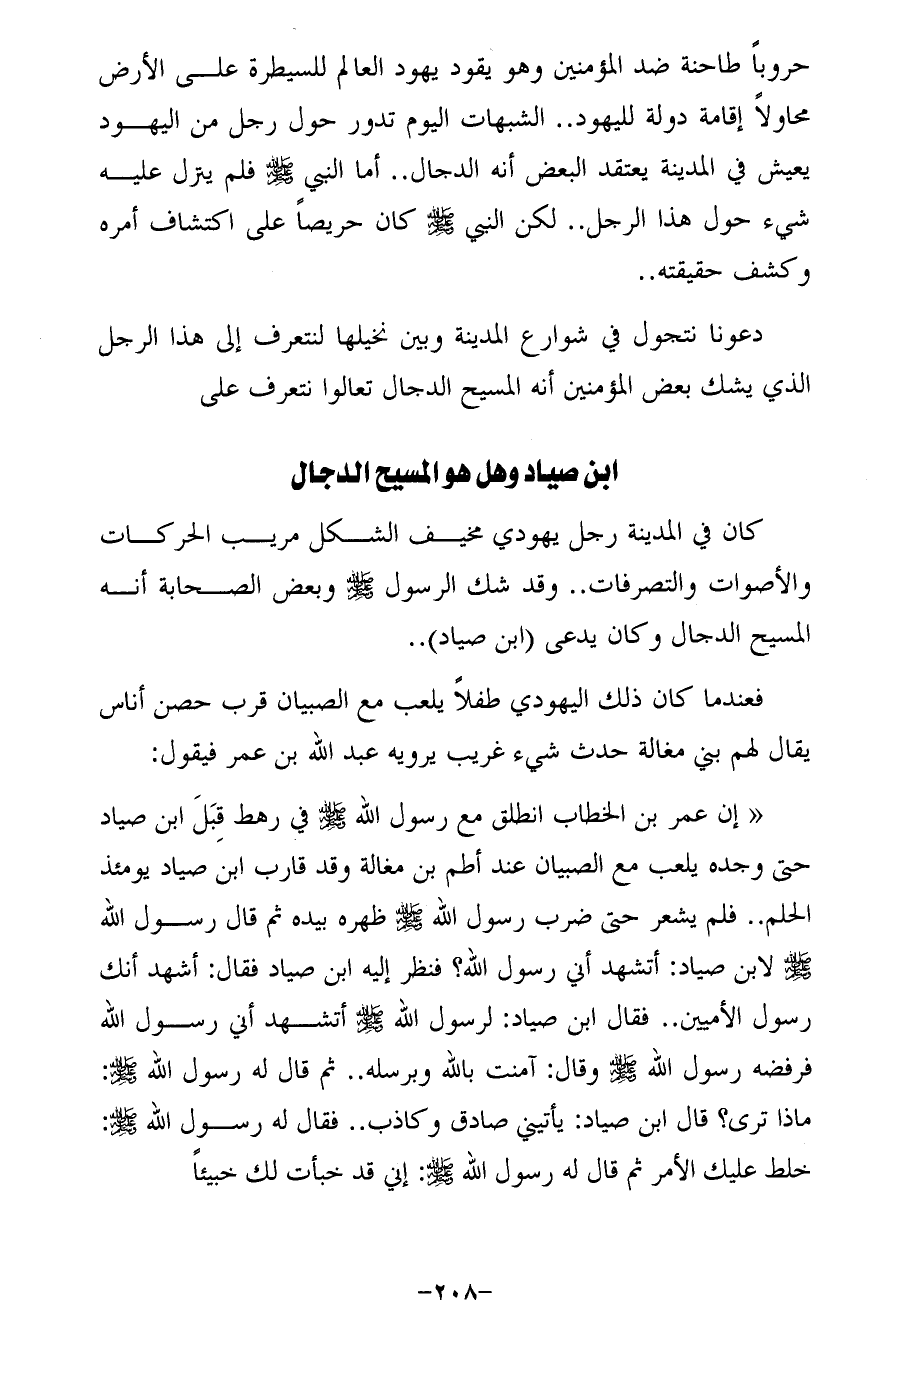 حروباً طاحنة ضد المؤمنين وهو يقود يهود العالم للسيطرة على الأرض
محاولاً إقامة دولة لليهود.. الشبهات اليوم تدور حول رجل من اليهود
يعيش في المدينة يعتقد البعض أنه الدجال.. أما النبي ﷺ فلم يترل عليه
شيء حول هذا الرجل.. لكن النبي ﷺ كان حريصاً على اكتشاف أمره
وكشف حقيقته..
دعونا نتجول في شوارع المدينة وبين نخيلها لنتعرف إلى هذا الرجل
الذي يشك بعض المؤمنين أنه المسيح الدجال تعالوا نتعرف على
ابن صياد وهل هو المسيح الدجال
كان في المدينة رجل يهودي مخيف الشكل مريب الحركات
والأصوات والتصرفات.. وقد شك الرسول ﷺ وبعض الصحابة أنه
المسيح الدجال وكان يدعى (ابن صياد)..
فعندما كان ذلك اليهودي طفلاً يلعب مع الصبيان قرب حصن أناس
يقال لهم بني مغالة حدث شيء غريب يرويه عبد الله بن عمر فيقول:
« إن عمر بن الخطاب انطلق مع رسول الله ﷺ في رهط قِبَلَ ابن صياد
حتى وجده يلعب مع الصبيان عند أطم بن مغالة وقد قارب ابن صياد يومئذ
الحلم.. فلم يشعر حتى ضرب رسول الله ﷺ ظهره بيده ثم قال رسول الله
ﷺ لابن صياد: أتشهد أني رسول الله؟ فنظر إليه ابن صياد فقال: أشهد أنك
رسول الأميين.. فقال ابن صياد: لرسول الله ﷺ أتشهد أني رسول الله
فرفضه رسول الله ﷺ وقال: آمنت بالله وبرسله.. ثم قال له رسول الله ﷺ:
ماذا ترى؟ قال ابن صياد: يأتيني صادق وكاذب.. فقال له رسول الله ﷺ:
خلط عليك الأمر ثم قال له رسول الله ﷺ: إني قد خبأت لك خبيئاً
-٢٠٨-